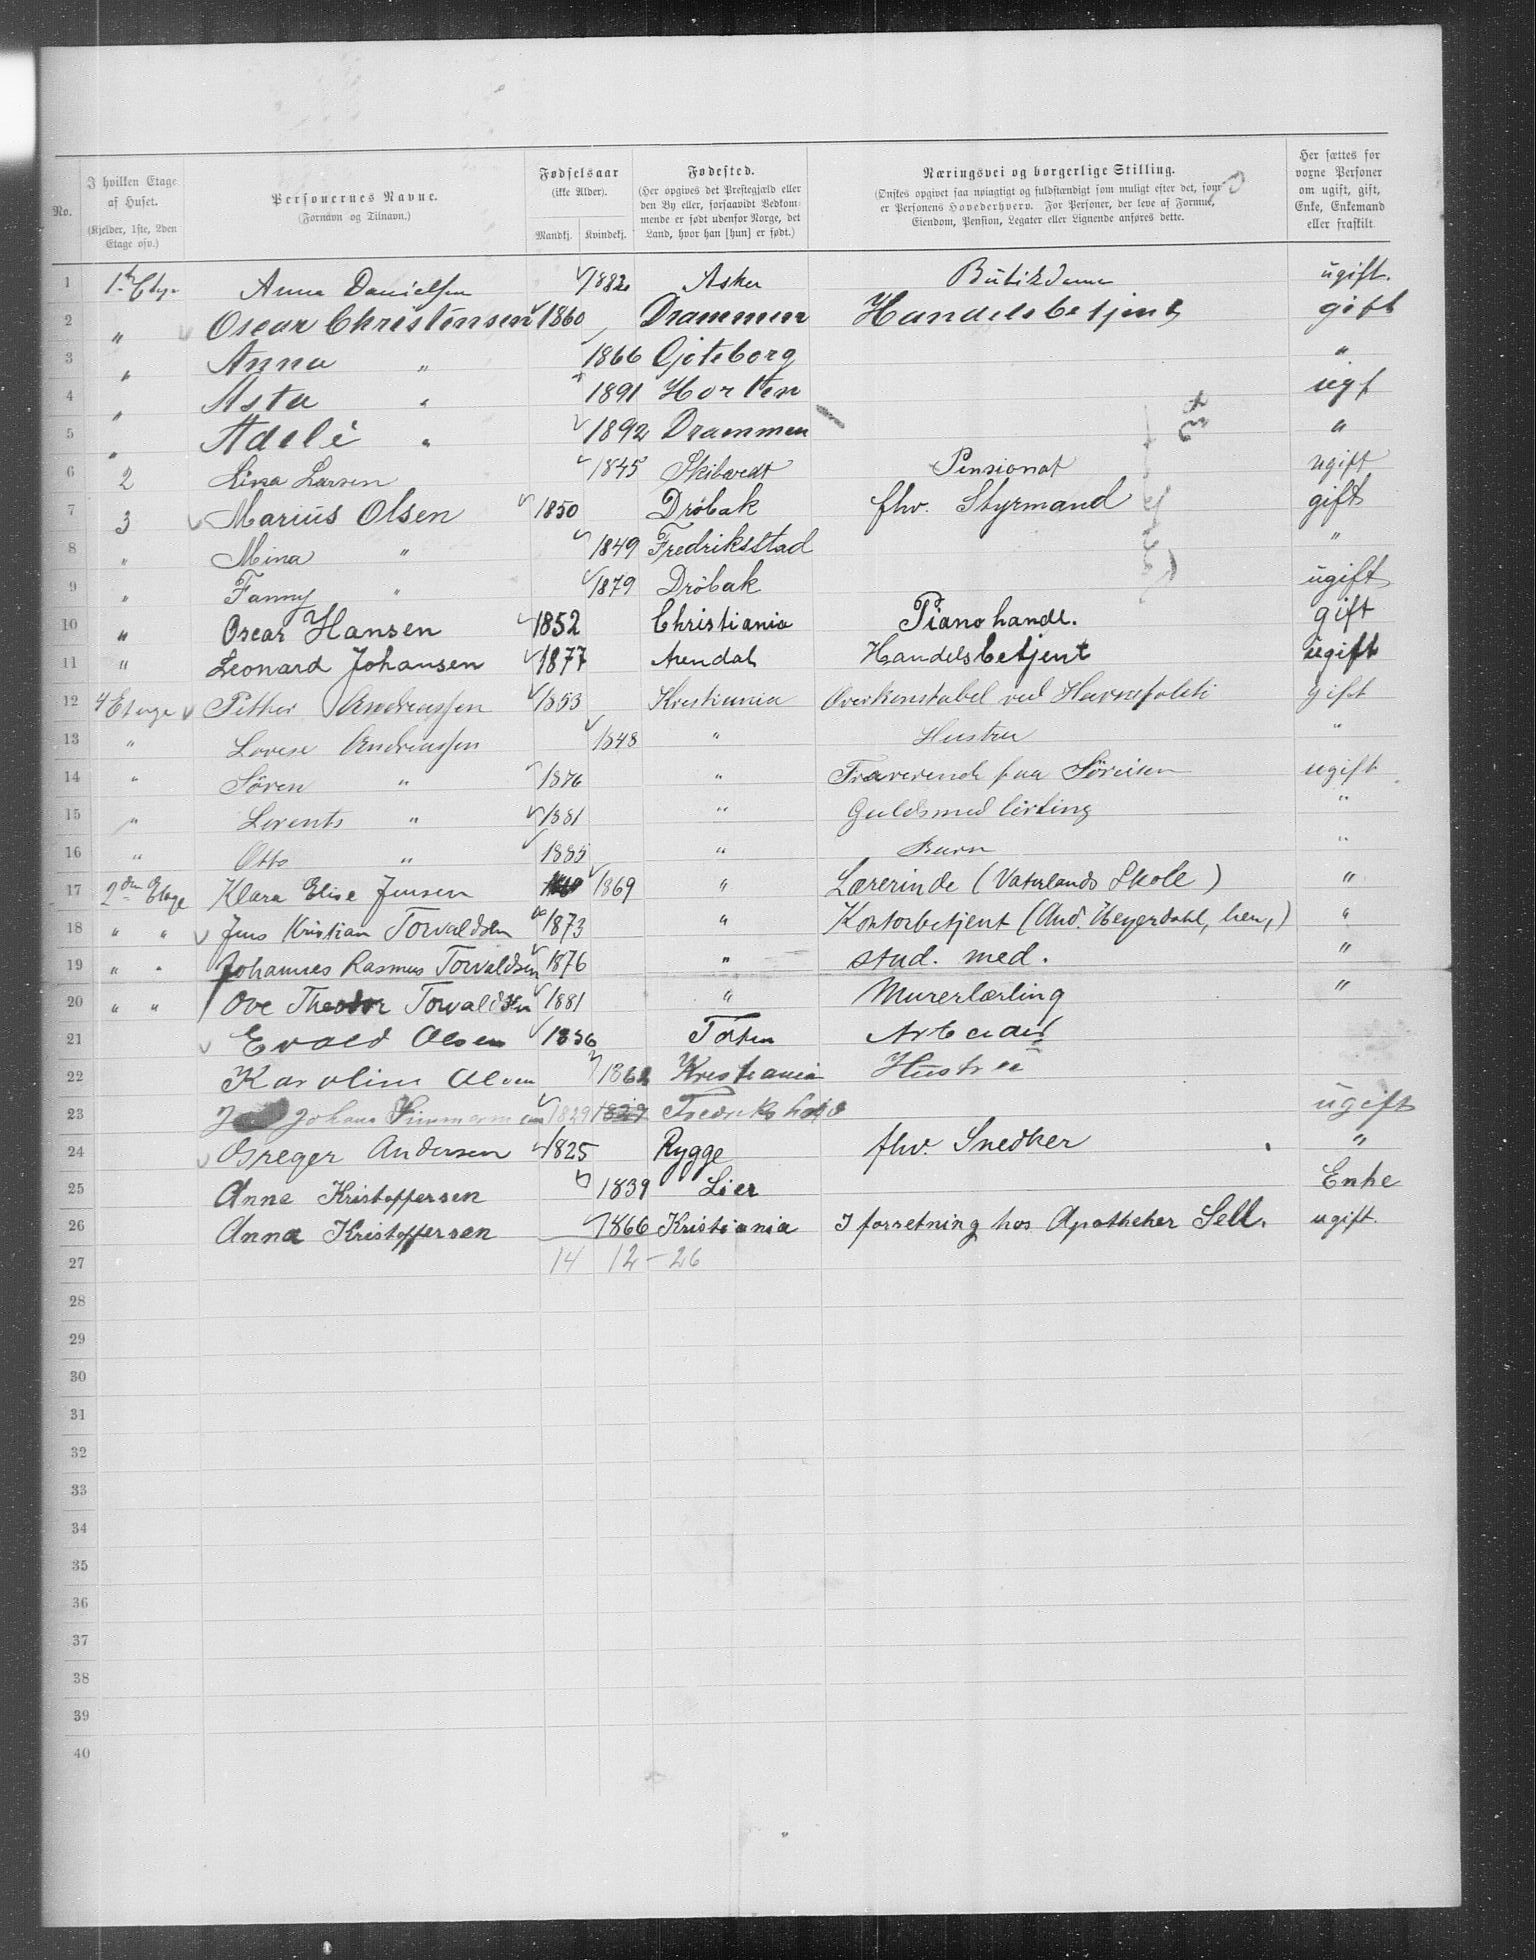 No.
I hvilken Etage af Huset. (Kjelder, 1ste, 2den Etage osv.)
Personernes Navne. (Fornavn og Tilnavn.)
Fødselsaar (ikke Alder). Mandkj. Kvindekj.
Fødested. (Her opgives det Prestegjæld eller den By eller, forsaavidt Vedkommende er født udenfor Norge, det Land, hvor han [hun] er født.)
Næringsvei og borgerlige Stilling. (Ønskes opgivet saa nøiagtigt og fuldstændigt som muligt efter det, som er Personens Hovederhverv. For Personer, der leve af Formue, Eiendom, Pension, Legater eller Lignende anføres dette.
Her sættes for voxne Personer om ugift, gift, Enke, Enkemand eller fraskilt.
1 1ste Etge Anna Danielsen 1882 Asker Butikdame ugift.
2 " Oscar Christensen 1860 Drammen Handelsbetjent gift
3 " Anna " 1866 Gjøteborg "
4 " Asta " 1891 Horten ugf
5 " Adele " 1892 Drammen "
6 2 Lina Larsen 1845 Skibtvedt Pensionat ugift
7 3 Marius Olsen 1850 Drøbak fhv. Styrmand gift
8 " Mina " 1849 Fredrikstad "
9 " Fanny " 1879 Drøbak ugift
10 " Oscar Hansen 1852 Christiania Piano handl. gift
11 " Leonard Johansen 1877 Arendal Handelsbetjent ugift
12 4 Etage Petter Andreassen 1853 Kristiania Overkonstabel ved Havnepoliti gift
13 " Lovise Andreassen 1848 " Hustru "
14 " Søren " 1876 " Fraværende paa Søreisen ugift
15 " Lorents " 1881 " Guldsmed lærling "
16 " Otto " 1885 " Barn "
17 2den Etage Klara Elise Jensen 1869 " Lærerinde (Vaterlands Skole) "
18 " " Jens Kristian Torvaldsen 1873 " Kontorbetjent (And. Heyerdahl, her,) "
19 " " Johannes Rasmus Torvaldsen 1876 " stud. med. "
20 " " Ove Theodor Torvaldsen 1881 " Murerlærling "
21 Evald Olsen 1856 Toten Arbeider
22 Karoline Olsen 1862 Kristiania Hustru
23 Johan Simmermann 1829 1829 Fredrikshald ugift
24 Greger Andersen 1825 Rygge fhv. Snedker "
25 Anne Kristoffersen 1839 Lier Enke
26 Anna Kristoffersen 1866 Kristiania I forretning hos Apotheker Sell. ugift.
27 14 12 - 26
28
29
30
31
32
33
34
35
36
37
38
39
40